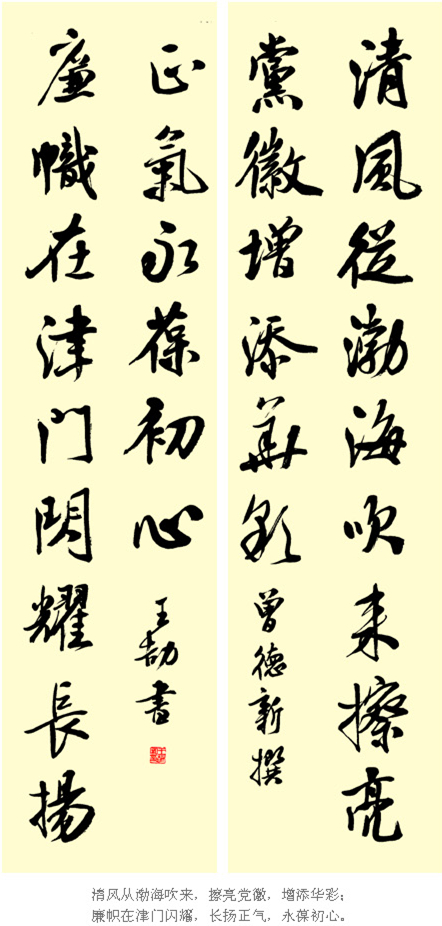 清風從渤海吹来擦亮
黨徽增添華彩
曾德新撰
廉幟在津門閃耀長揚
正氣永葆初心
王劼書
清风从渤海吹来，擦亮党徽，增添华彩；
廉帜在津门闪耀，长扬正气，永葆初心。